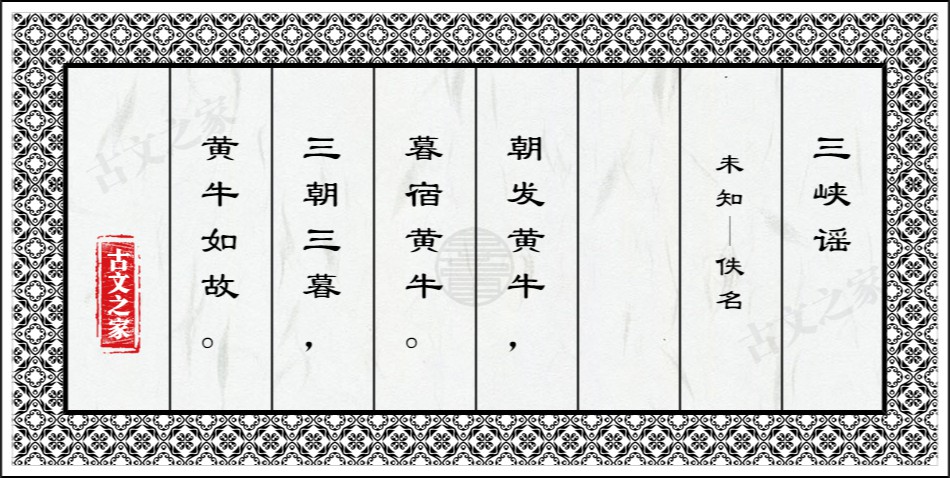 三峡谣
未知—佚名
朝发黄牛，
暮宿黄牛。
三朝三暮，
黄牛如故。
古文之家
古文之家
古文之家